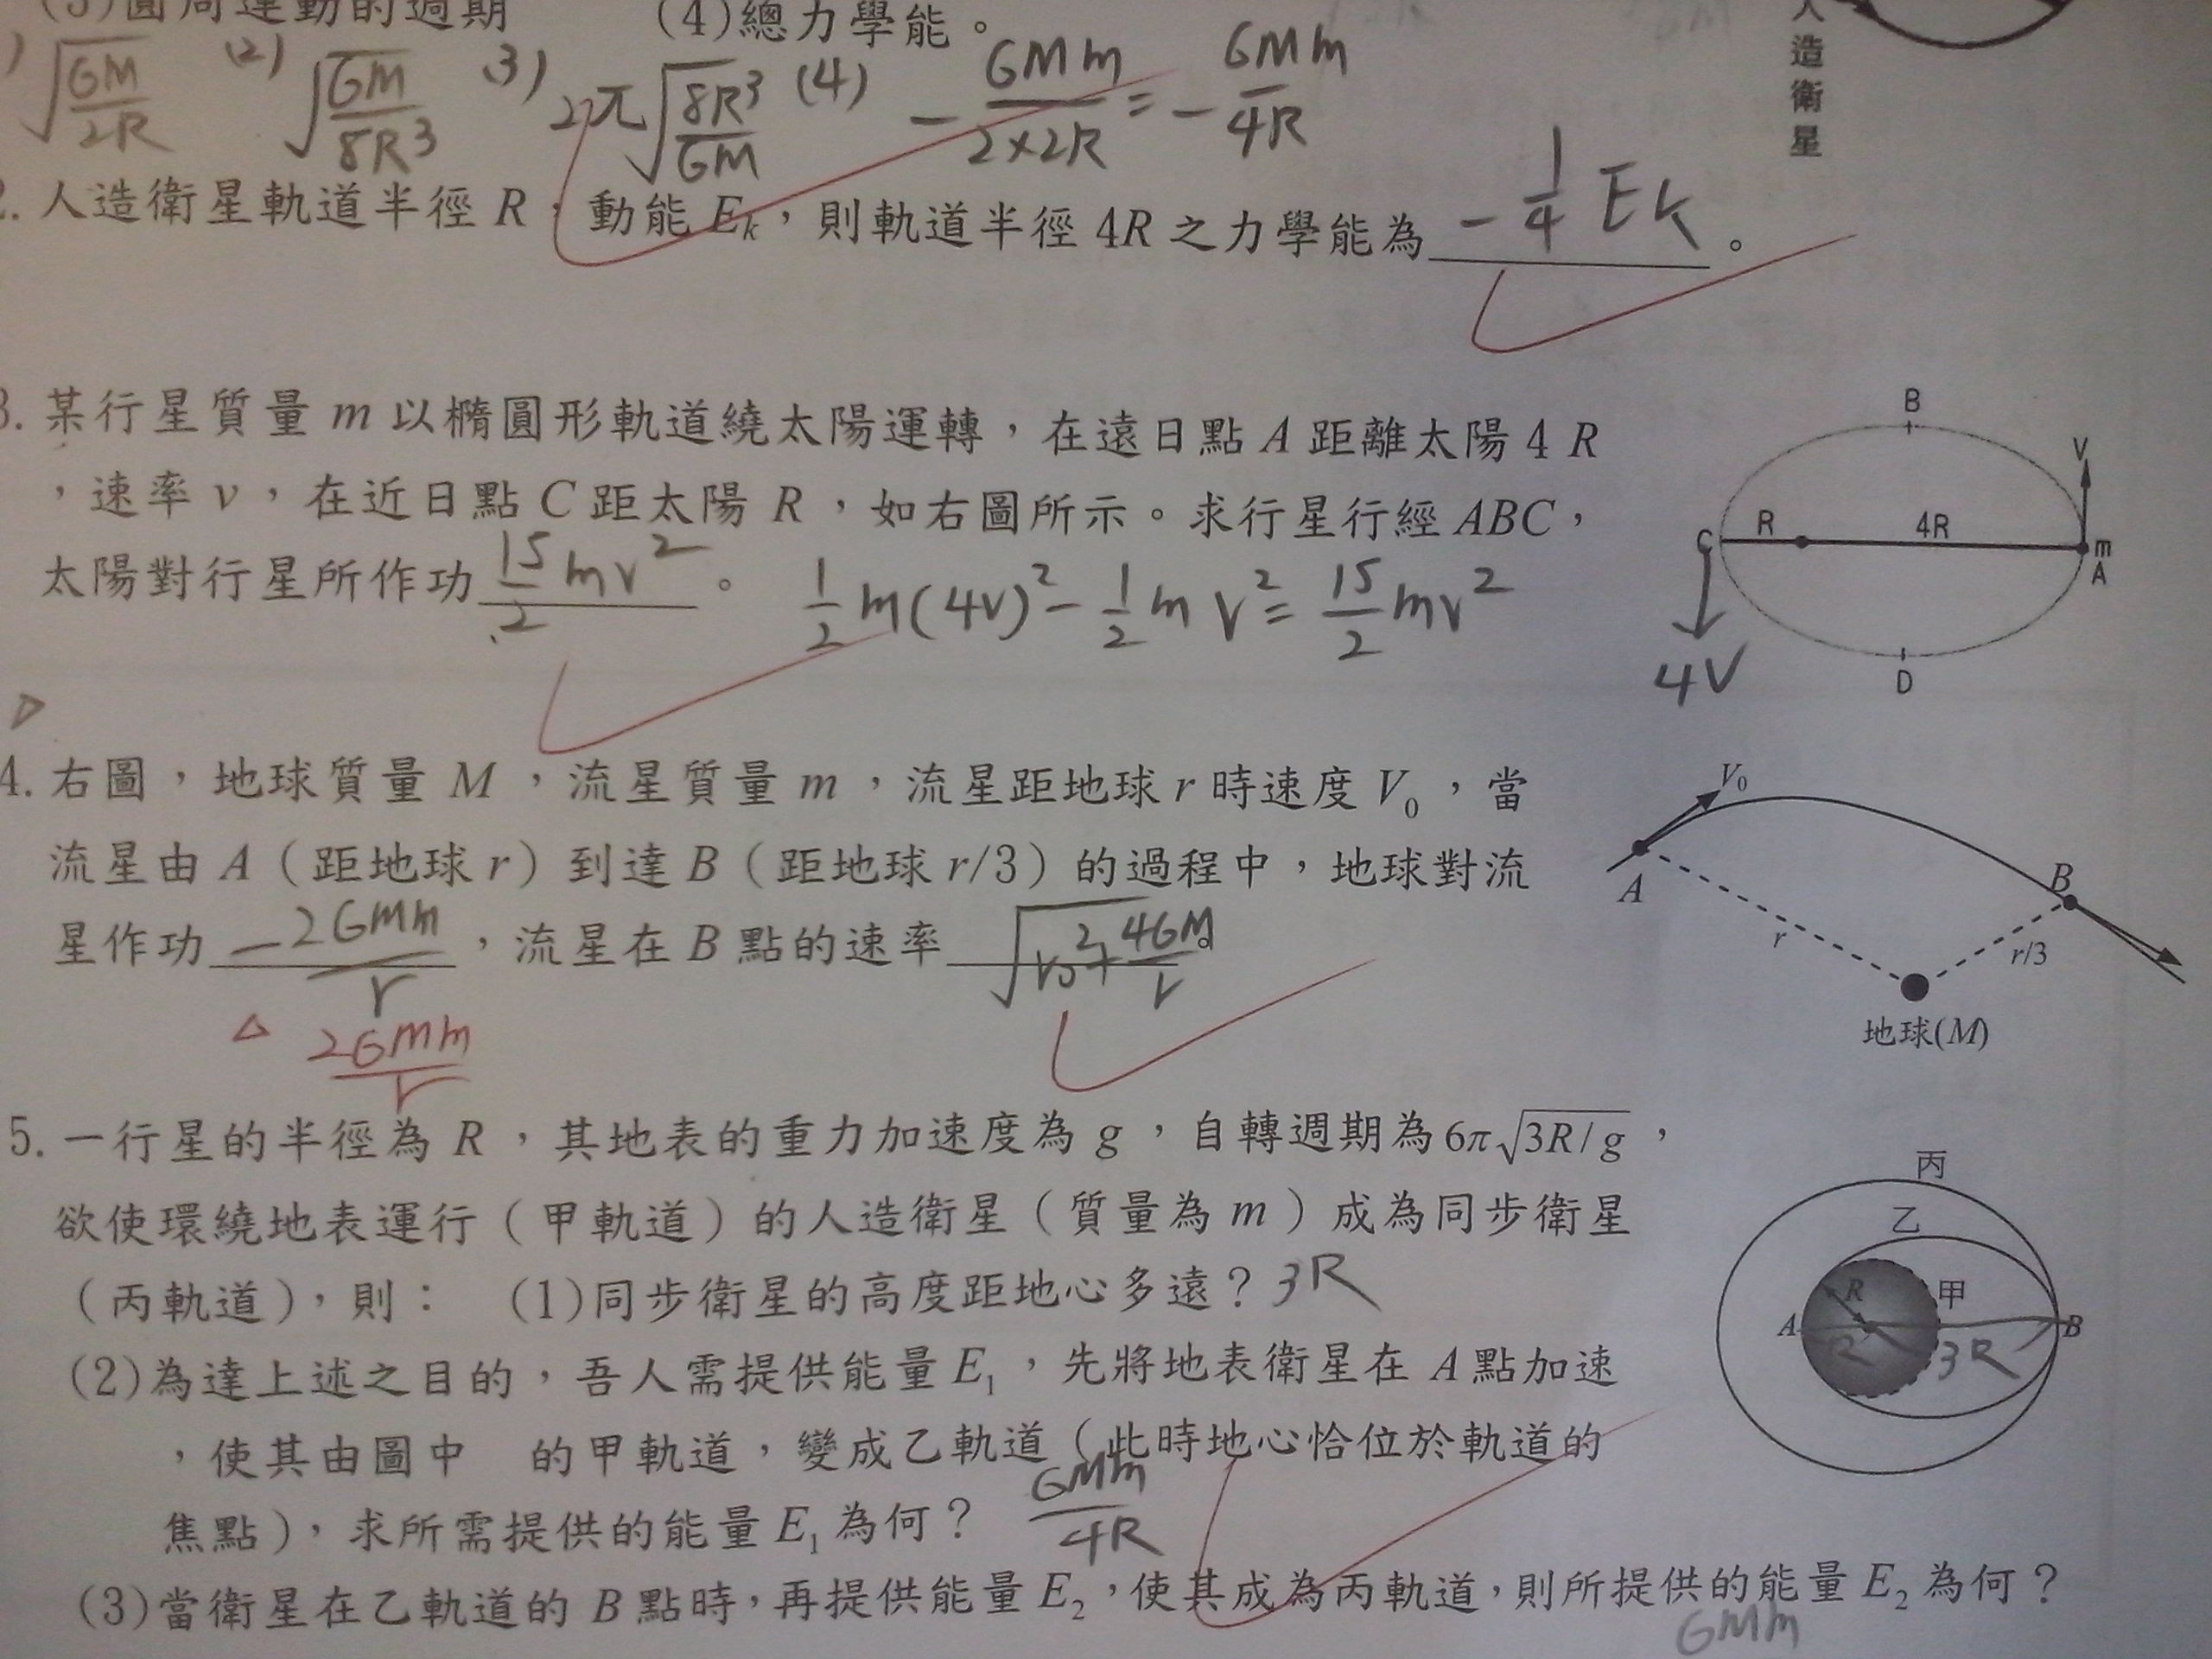 (3)圓周運動的週期 (4)總力學能。
) √(GM/2R) (2) √(GM/8R³) (3) 2π√(8R³/GM) (4) -GMm/2×2R = -GMm/4R
人造衛星
2. 人造衛星軌道半徑 R，動能 Eₖ，則軌道半徑 4R 之力學能為 -1/4 Ek 。
3. 某行星質量 m 以橢圓形軌道繞太陽運轉，在遠日點 A 距離太陽 4 R
，速率 v，在近日點 C 距太陽 R，如右圖所示。求行星行經 ABC，
太陽對行星所作功 15/2 mv² 。 1/2 m(4V)² - 1/2 m V² = 15/2 mv²
B
V
C R 4R m
A
4V
D
4. 右圖，地球質量 M，流星質量 m，流星距地球 r 時速度 V₀，當
流星由 A（距地球 r）到達 B（距地球 r/3）的過程中，地球對流
星作功 -2GMm/r ，流星在 B 點的速率 √(v₀²+4GM/r) 。
△ 2GMm/r
V₀
A
B
r
r/3
地球(M)
5. 一行星的半徑為 R，其地表的重力加速度為 g，自轉週期為 6π√3R/g，
欲使環繞地表運行（甲軌道）的人造衛星（質量為 m）成為同步衛星
（丙軌道），則： (1)同步衛星的高度距地心多遠？ 3R
(2)為達上述之目的，吾人需提供能量 E₁，先將地表衛星在 A 點加速
，使其由圖中 的甲軌道，變成乙軌道（此時地心恰位於軌道的
焦點），求所需提供的能量 E₁ 為何？ GMm/4R
(3)當衛星在乙軌道的 B 點時，再提供能量 E₂，使其成為丙軌道，則所提供的能量 E₂ 為何？
GMm
丙
乙
R 甲
A R 3R B